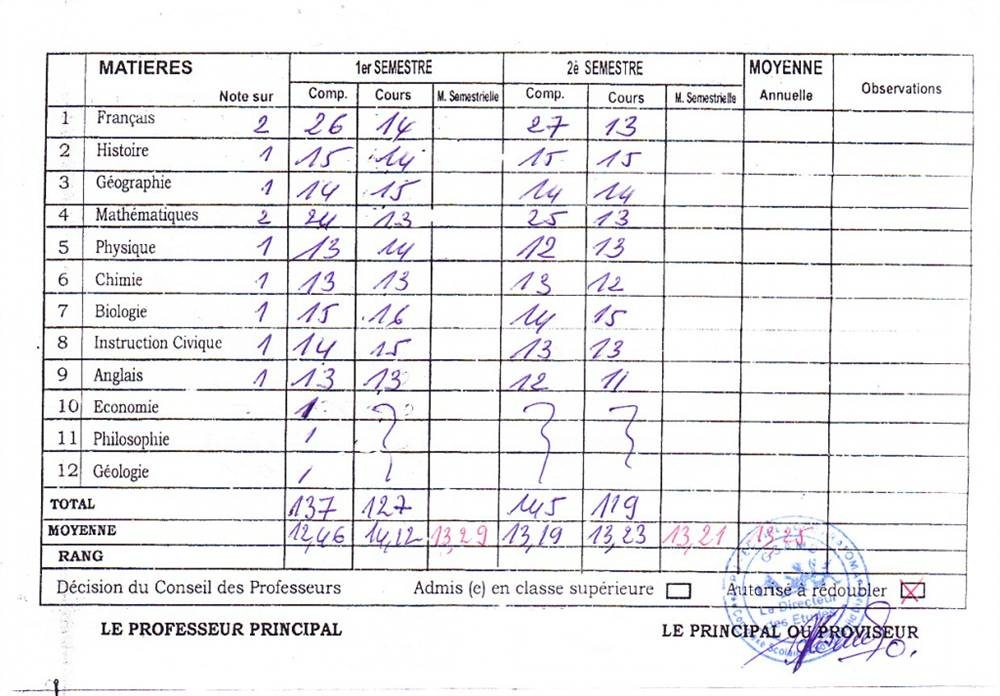 MATIERES 1er SEMESTRE 2è SEMESTRE MOYENNE Observations
Note sur Comp. Cours M. Semestrielle Comp. Cours M. Semestrielle Annuelle
1 Français 2 26 14 27 13
2 Histoire 1 15 14 15 15
3 Géographie 1 14 15 14 14
4 Mathématiques 2 24 13 25 13
5 Physique 1 13 14 12 13
6 Chimie 1 13 13 13 12
7 Biologie 1 15 16 14 15
8 Instruction Civique 1 14 15 13 13
9 Anglais 1 13 13 12 11
10 Economie
11 Philosophie
12 Géologie
TOTAL 137 127 145 119
MOYENNE 12,46 14,12 13,29 13,19 13,23 13,21 13,25
RANG
Décision du Conseil des Professeurs Admis (e) en classe supérieure Autorisé à rédoubler
Le Directeur
des Etudes
LE PROFESSEUR PRINCIPAL LE PRINCIPAL OU PROVISEUR